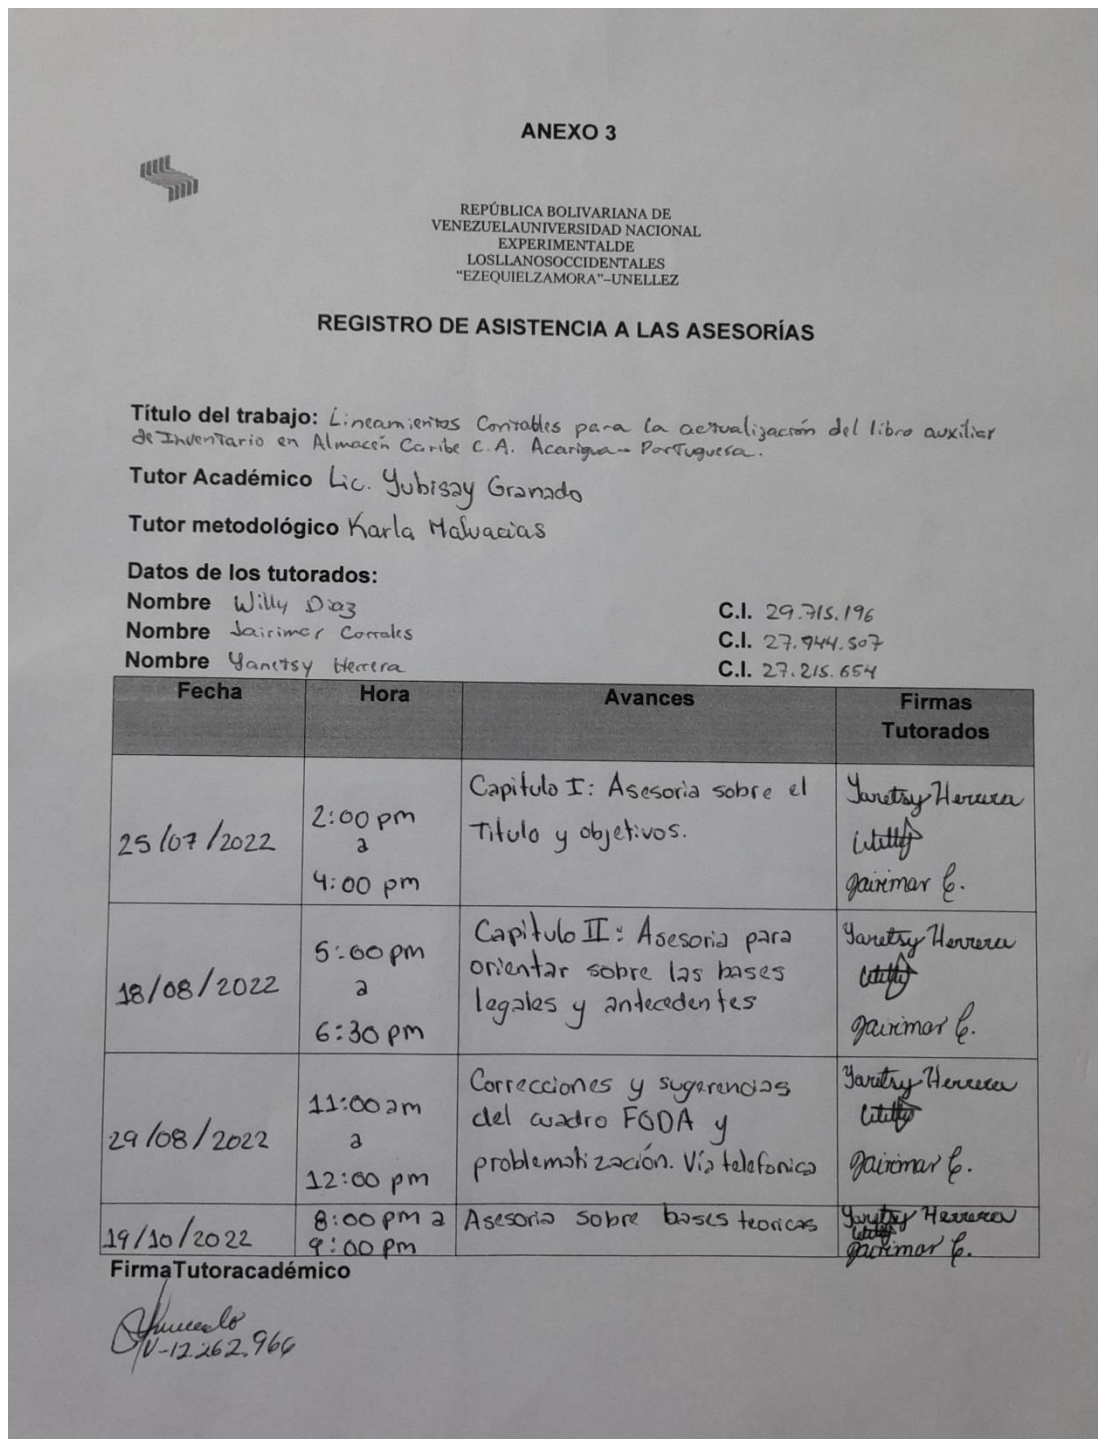 ANEXO 3
REPÚBLICA BOLIVARIANA DE
VENEZUELAUNIVERSIDAD NACIONAL
EXPERIMENTALDE
LOSLLANOSOCCIDENTALES
"EZEQUIELZAMORA"–UNELLEZ
REGISTRO DE ASISTENCIA A LAS ASESORÍAS
Título del trabajo: Lineamientos Contables para la actualización del libro auxiliar
de Inventario en Almacén Caribe C.A. Acarigua - Portuguesa.
Tutor Académico Lic. Yubisay Granado
Tutor metodológico Karla Malvacias
Datos de los tutorados:
Nombre Willy Diaz C.I. 29.715.196
Nombre Jairimar Corrales C.I. 27.944.507
Nombre Yaretsy Herrera C.I. 27.215.654
Fecha Hora Avances Firmas
Tutorados
25/07/2022
2:00 pm
a
4:00 pm
Capitulo I: Asesoria sobre el
Titulo y objetivos.
Yaretsy Herrera
Jairimar C.
18/08/2022
5:00 pm
a
6:30 pm
Capitulo II: Asesoria para
orientar sobre las bases
legales y antecedentes
Yaretsy Herrera
Jairimar C.
29/08/2022
11:00 am
a
12:00 pm
Correcciones y sugerencias
del cuadro FODA y
problematización. Vía telefonica
Yaretsy Herrera
Jairimar C.
19/10/2022
8:00 pm a
9:00 pm
Asesoria sobre bases teoricas
Yaretsy Herrera
Jairimar C.
FirmaTutoracadémico
V-12.262.966